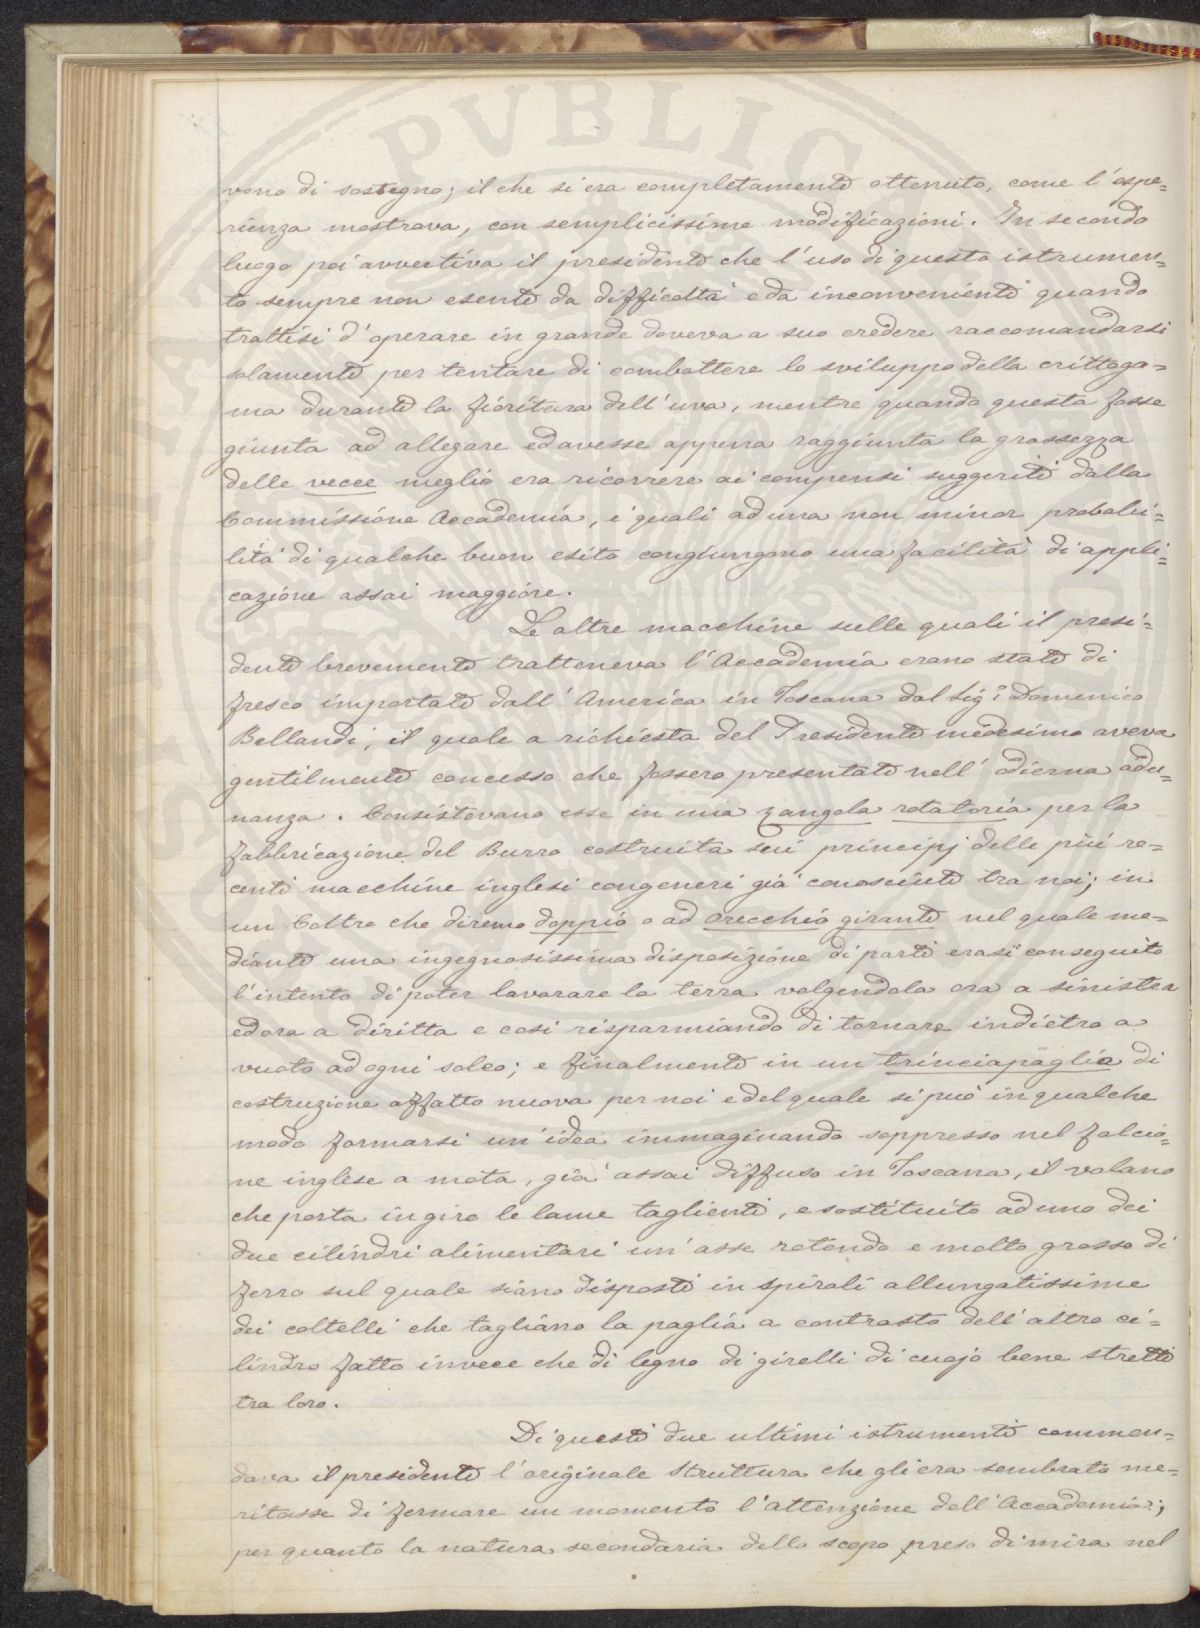 PVBLICA
vono di sostegno; il che si era completamente ottenuto, come l'espe=
rienza mostrava, con semplicissime modificazioni. In secondo
luogo poi avvertiva il presidente che l'uso di questo istrumen=
to sempre non esente da difficoltà e da inconvenienti quando
trattisi d'operare in grande doveva a suo credere raccomandarsi
solamente per tentare di combattere lo sviluppo della crittoga=
ma durante la fioritura dell'uva, mentre quando questa fosse
giunta ad allegare ed avesse appena raggiunta la grossezza
delle vecce meglio era ricorrere ai compensi suggeriti dalla
Commissione Accademia, i quali ad una non minor probabi=
lità di qualche buon esito congiungono una facilità di appli=
cazione assai maggiore.
Le altre macchine sulle quali il presi=
dente brevemente tratteneva l'Accademia erano state di
fresco importate dall'America in Toscana dal Sig.r Domenico
Bellandi, il quale a richiesta del Presidente medesimo aveva
gentilmente concesso che fossero presentate nell'odierna adu=
nanza. Consistevano esse in una zangola rotatoria per la
fabbricazione del Burro costruita sui principj delle più re=
centi macchine inglesi congeneri già conosciute tra noi; in
un Coltro che diremo doppio o ad orecchio girante nel quale me=
diante una ingegnosissima disposizione di parti erasi conseguito
l'intento di poter lavorare la terra volgendola ora a sinistra
ed ora a diritta e così risparmiando di tornare indietro a
vuoto ad ogni solco; e finalmente in un trinciapaglia di
costruzione affatto nuova per noi e del quale si può in qualche
modo formarsi un'idea immaginando soppresso nel falcio=
ne inglese a mota, già assai diffuso in Toscana, il volano
che porta in giro le lame taglienti, e sostituito ad uno dei
due cilindri alimentari un'asse rotondo e molto grosso di
ferro sul quale siano disposti in spirali allungatissime
dei coltelli che tagliano la paglia a contrasto dell'altro ci=
lindro fatto invece che di legno di girelli di cuojo bene stretti
tra loro.
Di questi due ultimi istrumenti commen=
dava il presidente l'originale struttura che gli era sembrato me=
ritasse di fermare un momento l'attenzione dell'Accademia;
per quanto la natura secondaria dello scopo preso di mira nel